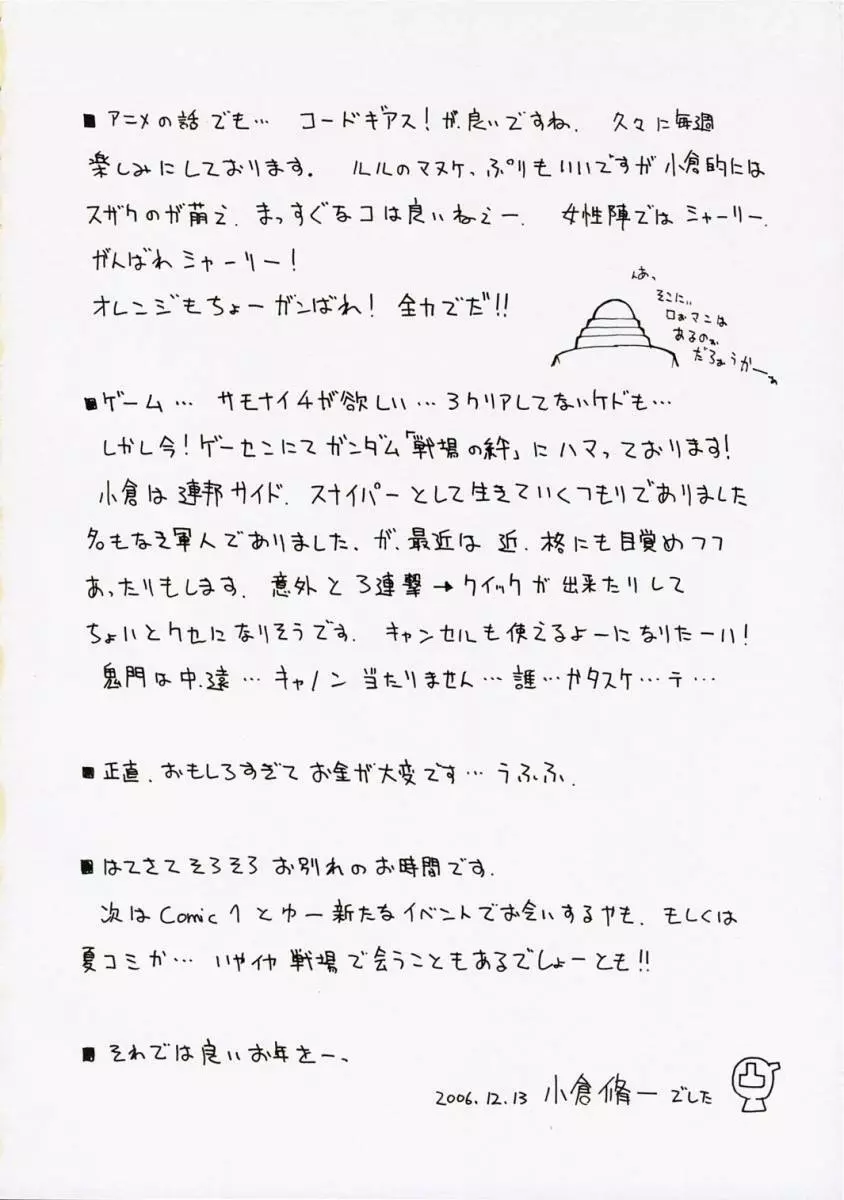 ■アニメの話でも… コードギアス!が良いですね. 久々に毎週
楽しみにしております. ルルのマヌケ、ぷりもいいですが小倉的には
スザクのが萌え. まっすぐなコは良いねぇー. 女性陣ではシャーリー.
がんばれシャーリー!
オレンジもちょーガンばれ! 全力でだ!!
んあ、
そこにぃ
ロぉマンは
あるのぉ
だろぉうかーぁ
■ゲーム… サモナイ4が欲しい…3クリアしてないケドも…
しかし今!ゲーセンにてガンダム「戦場の絆」にハマっております!
小倉は連邦サイド. スナイパーとして生きていくつもりでありました
名もなき軍人でありました. が. 最近は 近. 格にも目覚めつつ
あったりもします. 意外と3連撃→クイックが出来たりして
ちょいとクセになりそうです. キャンセルも使えるよーになりたーい!
鬼門は中.遠…キャノン当たりません…誰…かタスケ…テ…
■正直. おもしろすぎてお金が大変です…うふふ.
■はてさてそろそろお別れのお時間です.
次はComic1とゆー新たなイベントでお会いするやも. もしくは
夏コミか… いやイヤ戦場で会うこともあるでしょーとも!!
■それでは良いお年をー、
2006.12.13 小倉脩一でした
凸